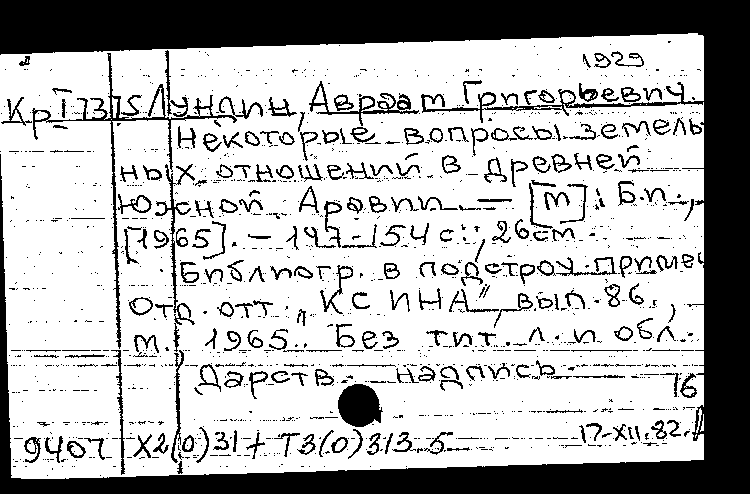 1929
Кр I 7375 Лундин, Авраам Григорьевич.
Некоторые вопросы земель
ных отношений в древней
Южной Аравии. — [М]: Б.п.,
[1965]. – 147-154 с.; 26см.
Библиогр. в подстроч. примеч
Отд. отт. „КСИНА", вып. 86.,
М., 1965. Без тит. л. и обл.
Дарств. надпись.
16
9407 Х2(0)31 + Т3(0)313.5 17-XII.82.